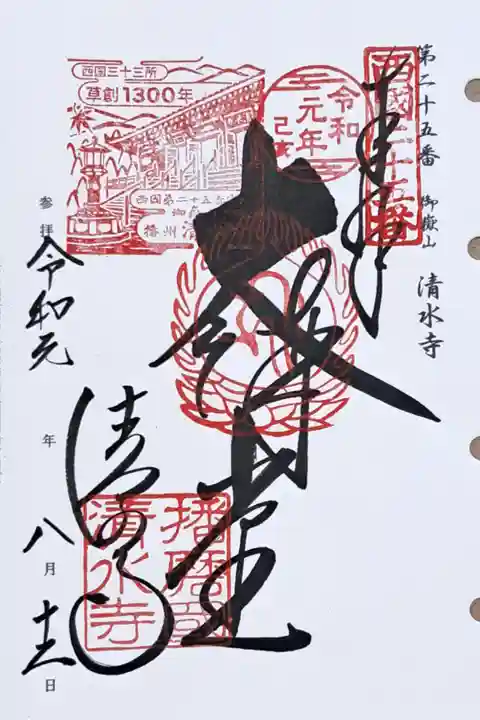 第二十五番 御嶽山 清水寺
西國二十五番
奉拝
令和
元年
己亥
西国三十三所
草創1300年
西国第二十五
播州 清
大講堂
播磨國
清水寺
清水寺
参拝 令和元年 八月 十二日